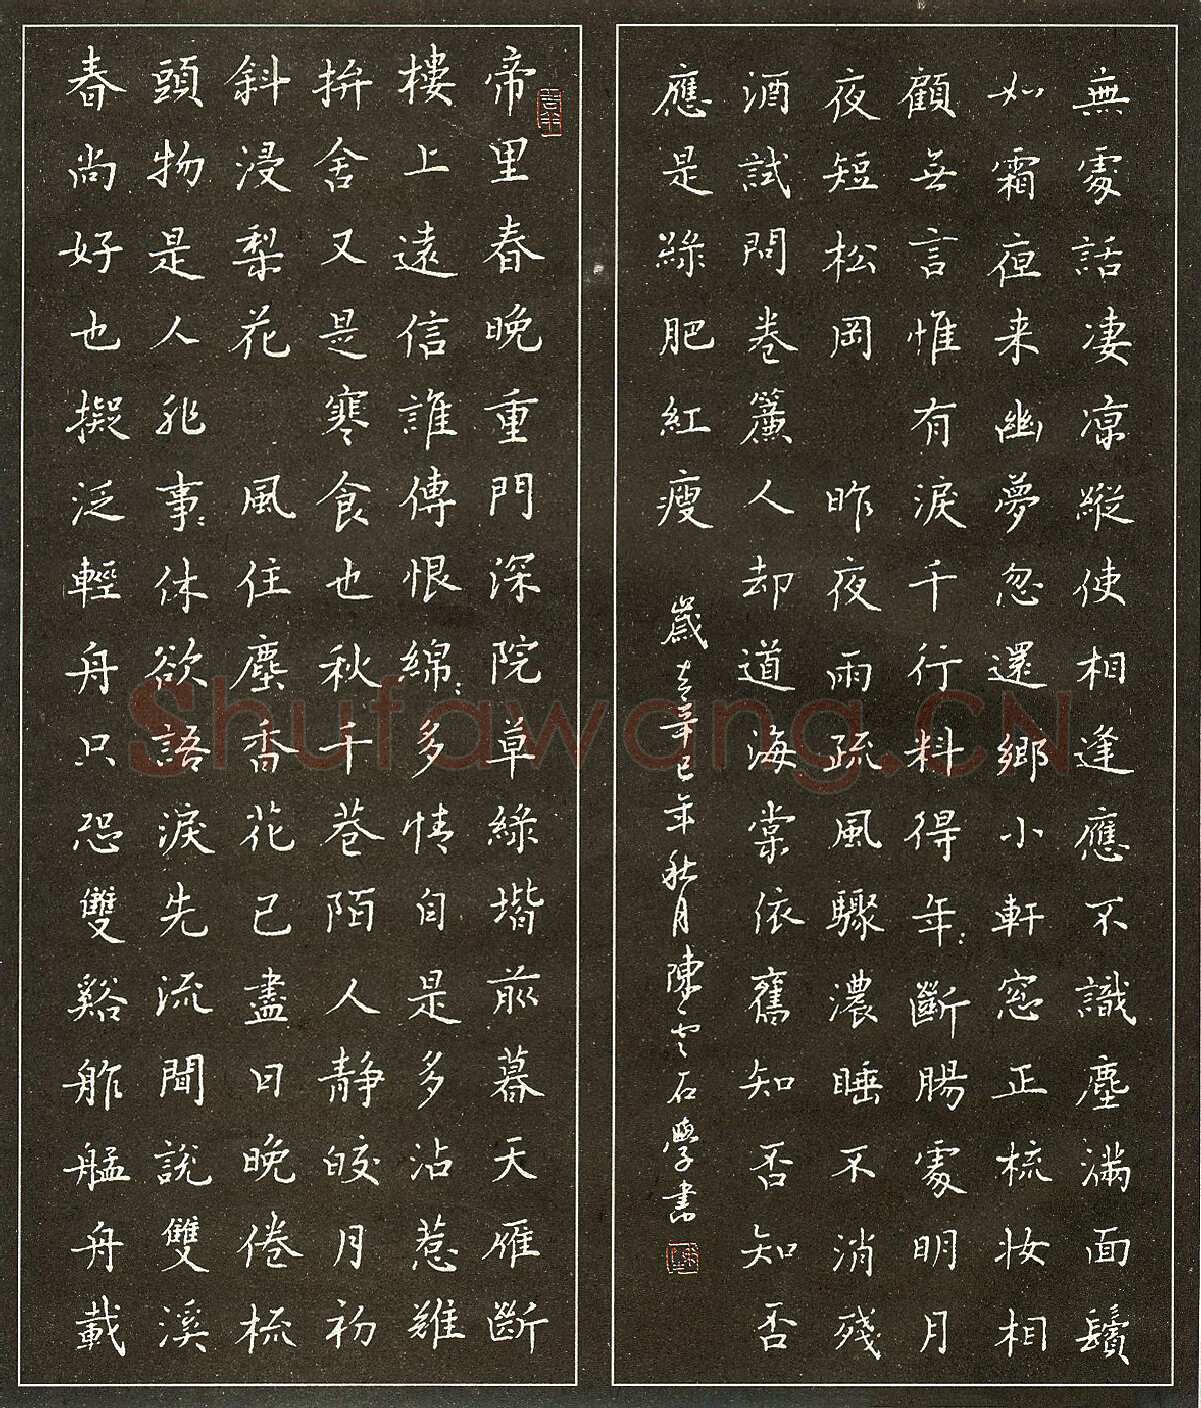 無處話凄涼縱使相逢應不識塵滿面鬢
如霜夜来幽夢忽還鄉小軒窓正梳妆相
顧無言惟有淚千行料得年:斷腸處明月
夜短松岡 昨夜雨疏風驟濃睡不消殘
酒試問卷簾人却道海棠依舊知否知否
應是綠肥紅瘦 歲在辛巳年秋月陳云石學書
帝里春晚重門深院草綠堦前暮天雁斷
樓上遠信誰傳恨綿:多情自是多沾惹難
拚舍又是寒食也秋千巷陌人靜皎月初
斜浸梨花 風住塵香花已盡日晚倦梳
頭物是人非事:休欲語淚先流聞說雙溪
春尚好也擬泛輕舟只恐雙谿舴艋舟載
Shufawang.CN